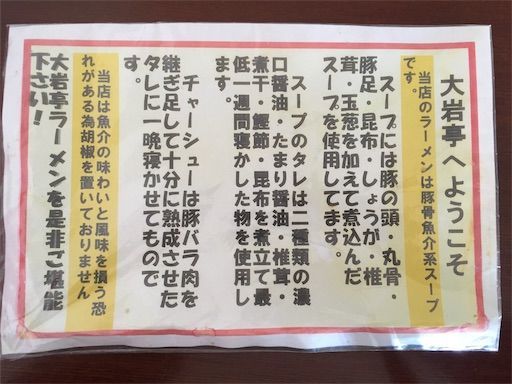 大岩亭へようこそ
当店のラーメンは豚骨魚介系スープ
です。
スープには豚の頭・丸骨・
豚足・昆布・しょうが・椎
茸・玉葱を加えて煮込んだ
スープを使用してます。
スープのタレは二種類の濃
口醤油・たまり醤油・椎茸・
煮干・鰹節・昆布を煮立て最
低一週間寝かした物を使用し
ます。
チャーシューは豚バラ肉を
継ぎ足して十分に熟成させた
タレに一晩寝かせてもので
す。
当店は魚介の味わいと風味を損う恐
れがある為胡椒を置いておりません
大岩亭ラーメンを是非ご堪能
下さい!